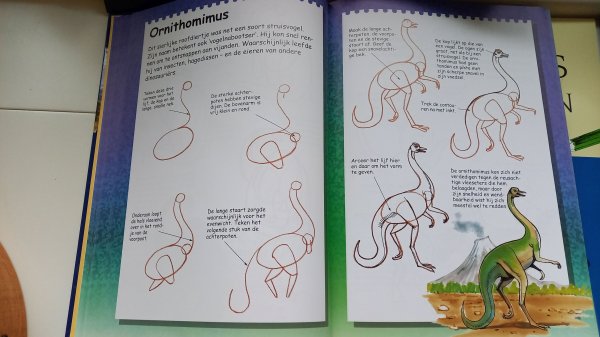 Ornithomimus
Dit sierlijke roofdiertje was net een soort struisvogel.
Zijn naam betekent ook 'vogelnabootser'. Hij kon snel ren-
nen om te ontsnappen aan vijanden. Waarschijnlijk leefde
hij van insecten, hagedissen - en de eieren van andere
dinosauriërs.
Teken deze drie
vormen voor het
lijf, de kop en de
lange, smalle nek.
De sterke achter-
poten hebben stevige
dijen. De bovenarm is
vrij klein en rond.
Onderaan loopt
de hals vloeiend
over in het rond-
je van de
voorpoot.
De lange staart zorgde
waarschijnlijk voor het
evenwicht. Teken het
volgende stuk van de
achterpoten.
Maak de lange ach-
terpoten, de voorpo-
ten en de stevige
staart af. Geef de
kop een snavelachti-
ge bek.
De kop lijkt op die van
een vogel. De ogen zijn
groot, net als bij een
struisvogel. De orni-
thomimus had geen
tanden en pikte met
zijn scherpe snavel in
zijn voedsel.
Trek de contou-
ren na met inkt.
Arceer het lijf hier
en daar om het vorm
te geven.
De ornithomimus kon zich niet
verdedigen tegen de reusach-
tige vleeseters die hem
belaagden, maar door
zijn snelheid en wend-
baarheid wist hij zich
meestal wel te redden.
S
N